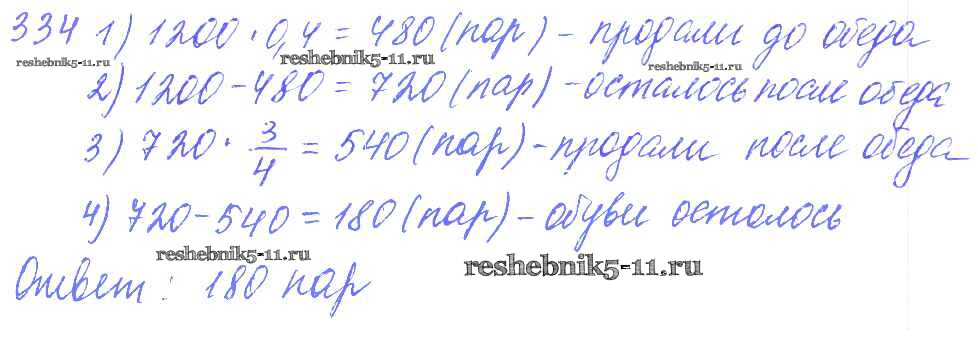 334 1) 1200 · 0,4 = 480 (пар) - продали до обеда
reshebnik5-11.ru reshebnik5-11.ru reshebnik5-11.ru
2) 1200 - 480 = 720 (пар) - осталось после обеда
3) 720 · 3/4 = 540 (пар) - продали после обеда
4) 720 - 540 = 180 (пар) - обуви осталось
reshebnik5-11.ru reshebnik5-11.ru
Ответ: 180 пар